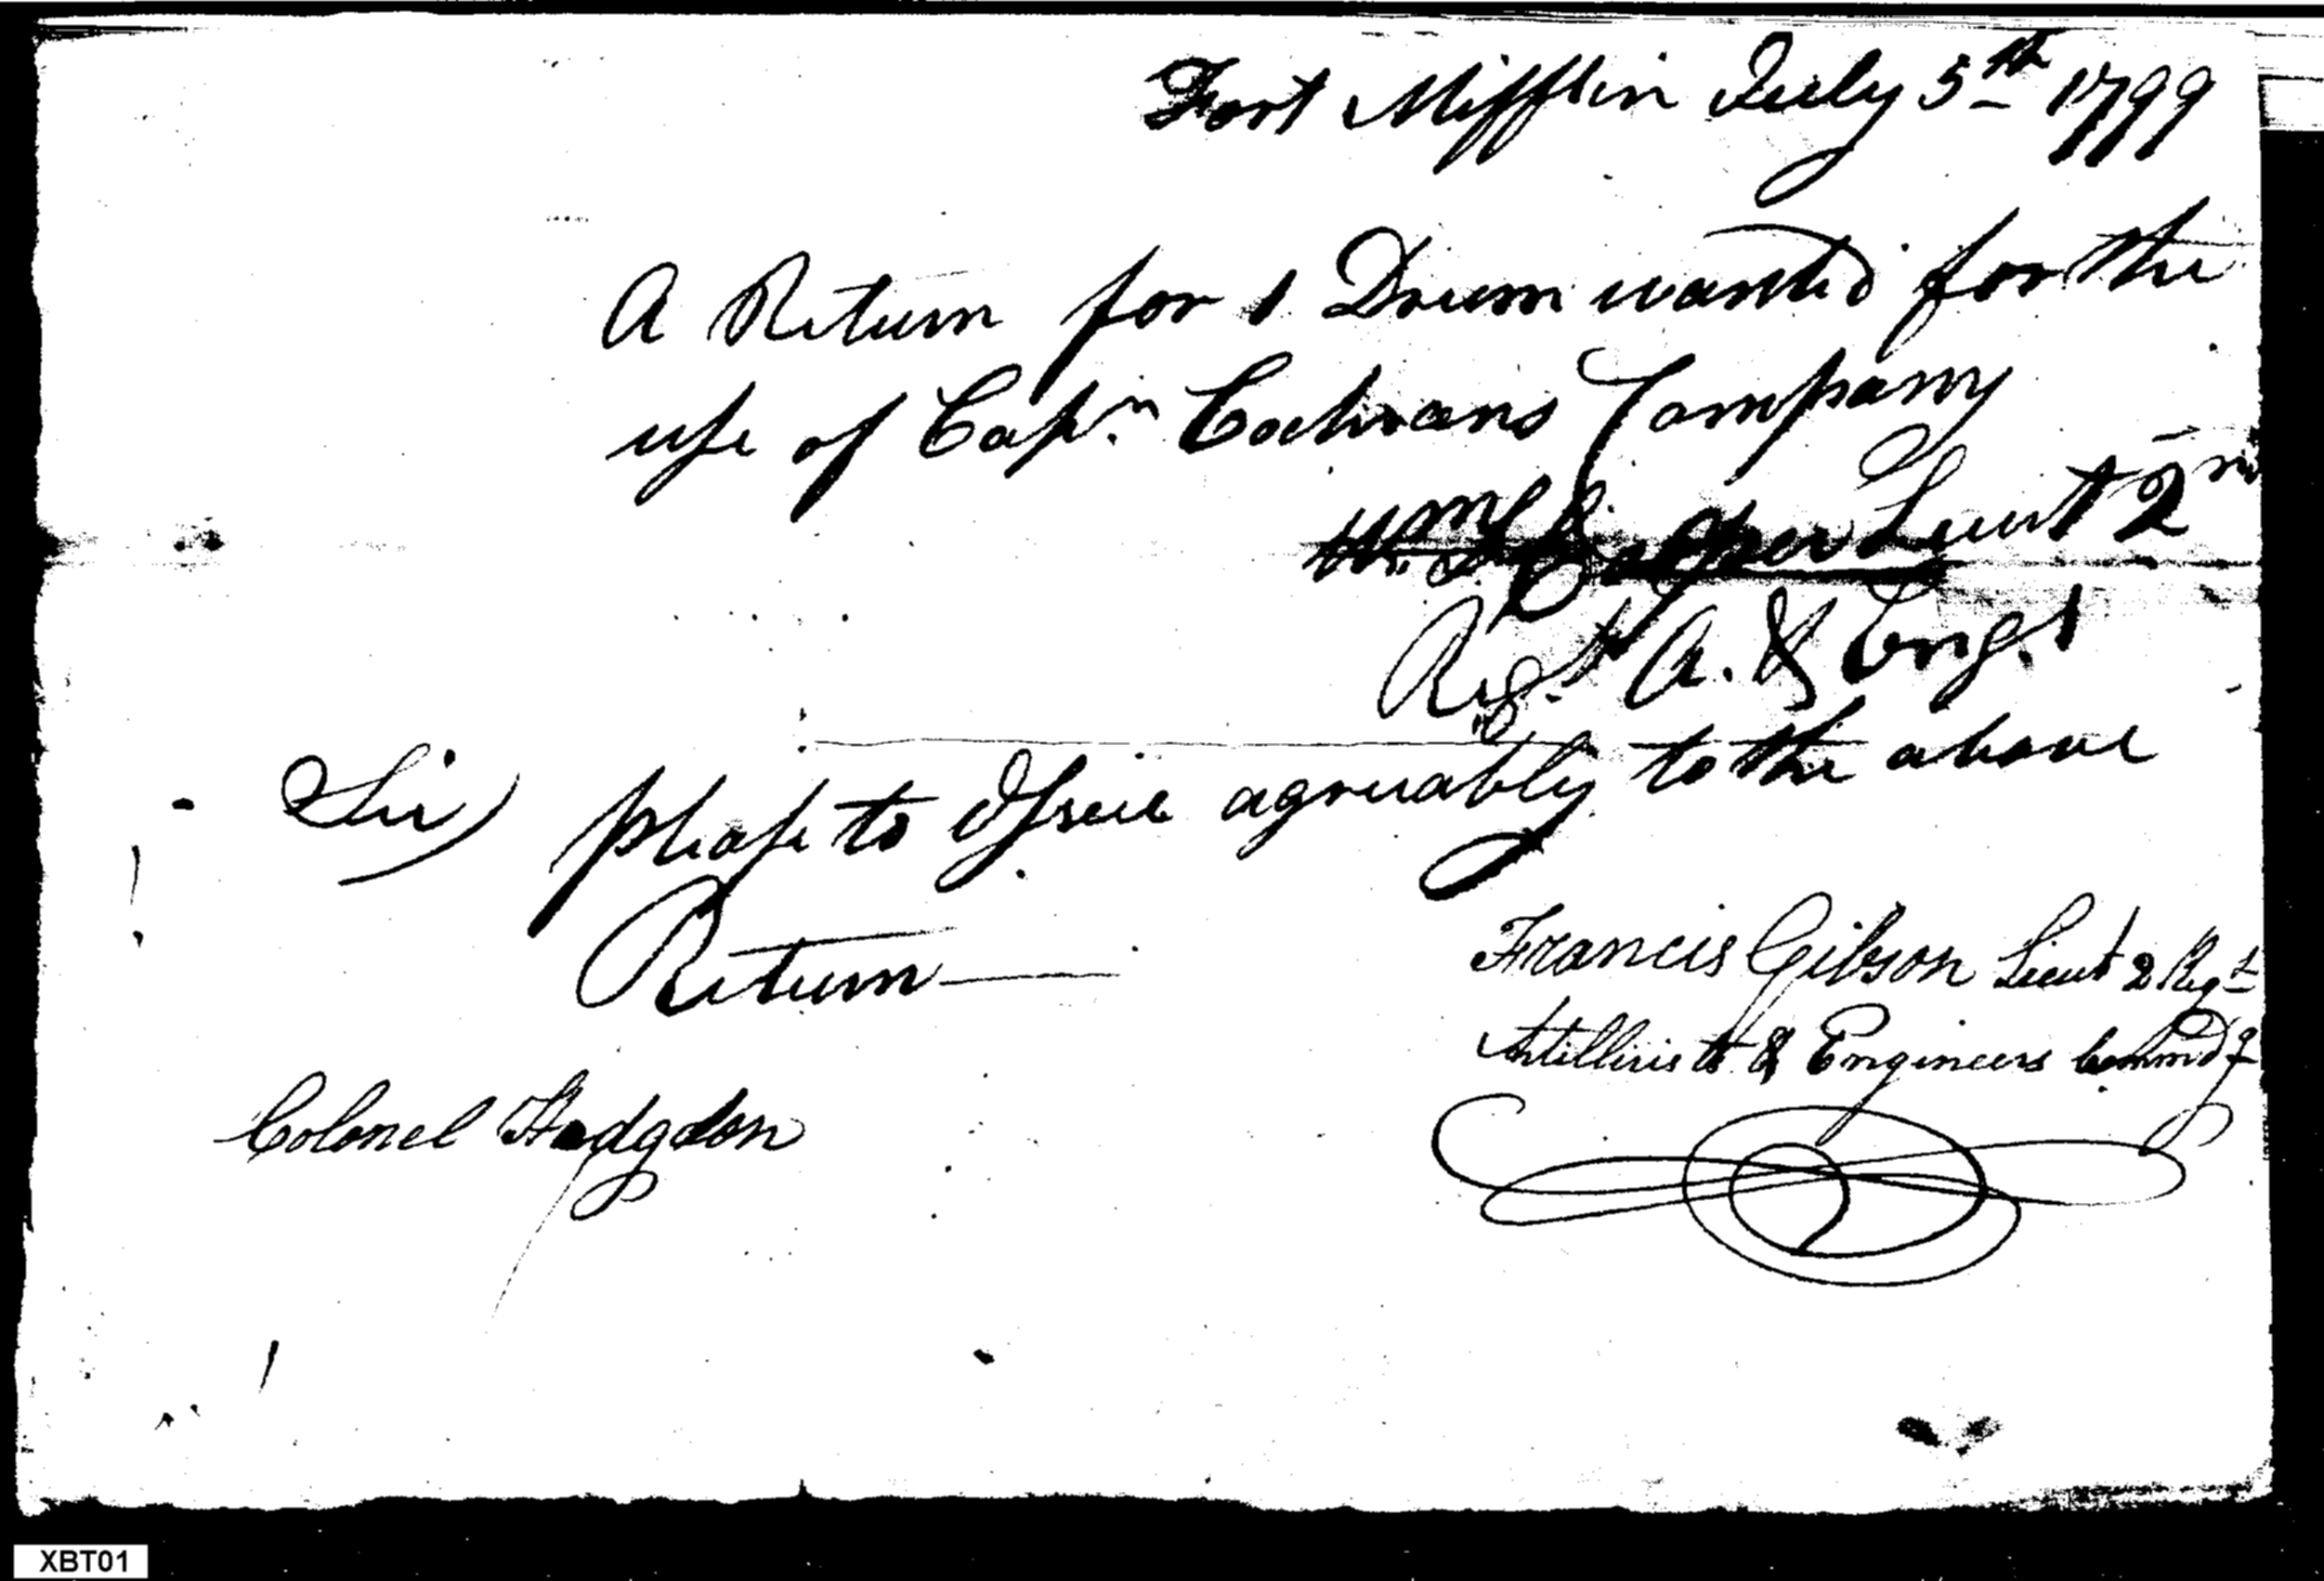 Fort Mifflin July 5th 1799
A Return for 1 Drum wanted for the
use of Capn. Cochrans Company
Lieut 2nd
Regt. A. & Engs
Sir please to Issue agreeably to the above
Return
Francis Gibson Lieut 2 Regt
Artillerists & Engineers Commdg
Colonel Hodgdon
XBT01